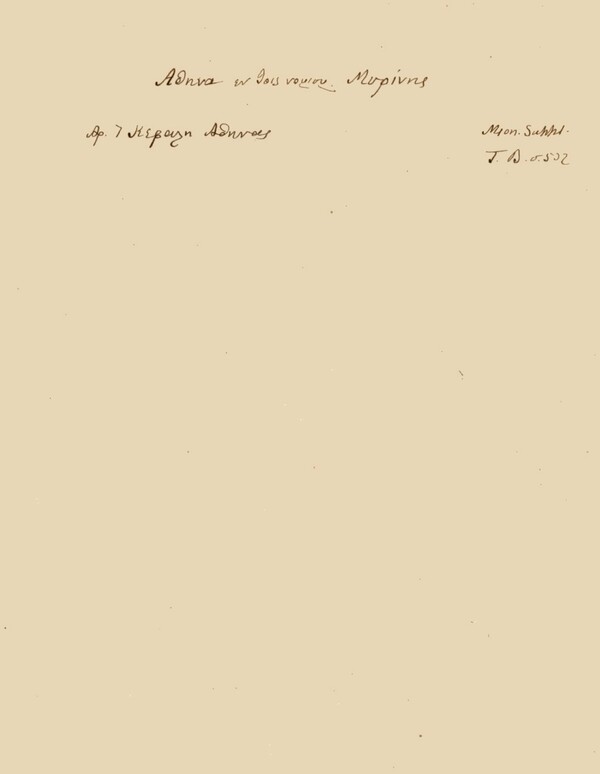 Αθηνα εν τοις νομισμ. Μυρίνης
Αρ. 7 Κεφαλη Αθηνας
Mion. Suppl.
T. B. σ. 532